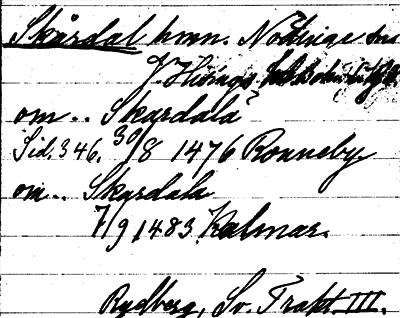 Skårdal hmn. Nödinge sn
J. Hisings
om.. Skardala
Sid. 346. 30/8 1476 Ronneby.
om.. Skardala
7/9 1483 Kalmar.
Rydberg, Sv. Trakt. III.